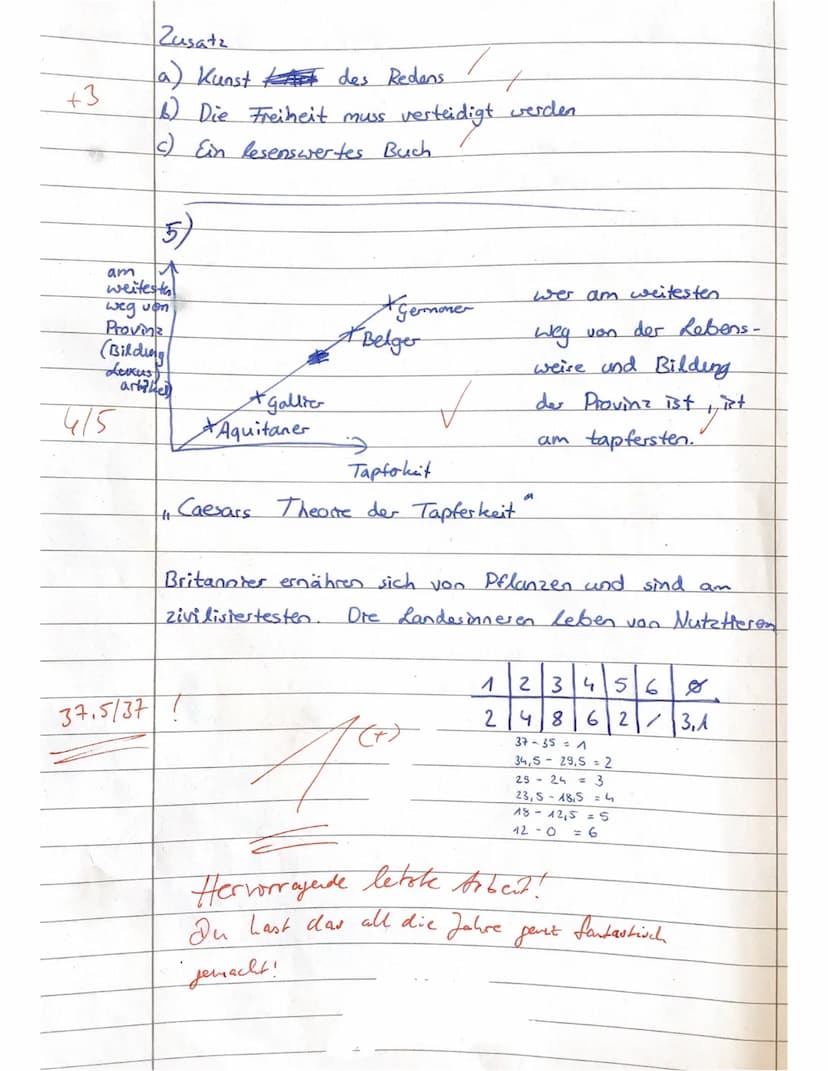 Zusatz
a) Kunst des Redens
+3
b) Die Freiheit muss verteidigt werden
c) Ein lesenswertes Buch
5)
am
weitesten
weg von
Provinz
(Bildung
Luxus
artikel)
Germaner
Belger
Gallier
Aquitaner
Tapferkeit
wer am weitesten
weg von der Lebens-
weise und Bildung
der Provinz ist, ist
am tapfersten.
4/5
„Caesars Theorie der Tapferkeit"
Britannier ernähren sich von Pflanzen und sind am
zivilisiertesten. Die Landesinneren leben von Nutztieren
1 2 3 4 5 6 Ø
2 4 8 6 2 / 3,1
37-35 = 1
34,5 - 29,5 = 2
29 - 24 = 3
23,5 - 18,5 = 4
18 - 12,5 = 5
12 - 0 = 6
37.5/37 !
1 (+)
Hervorragende letzte Arbeit!
Du hast das all die Jahre fantastisch
gemacht!